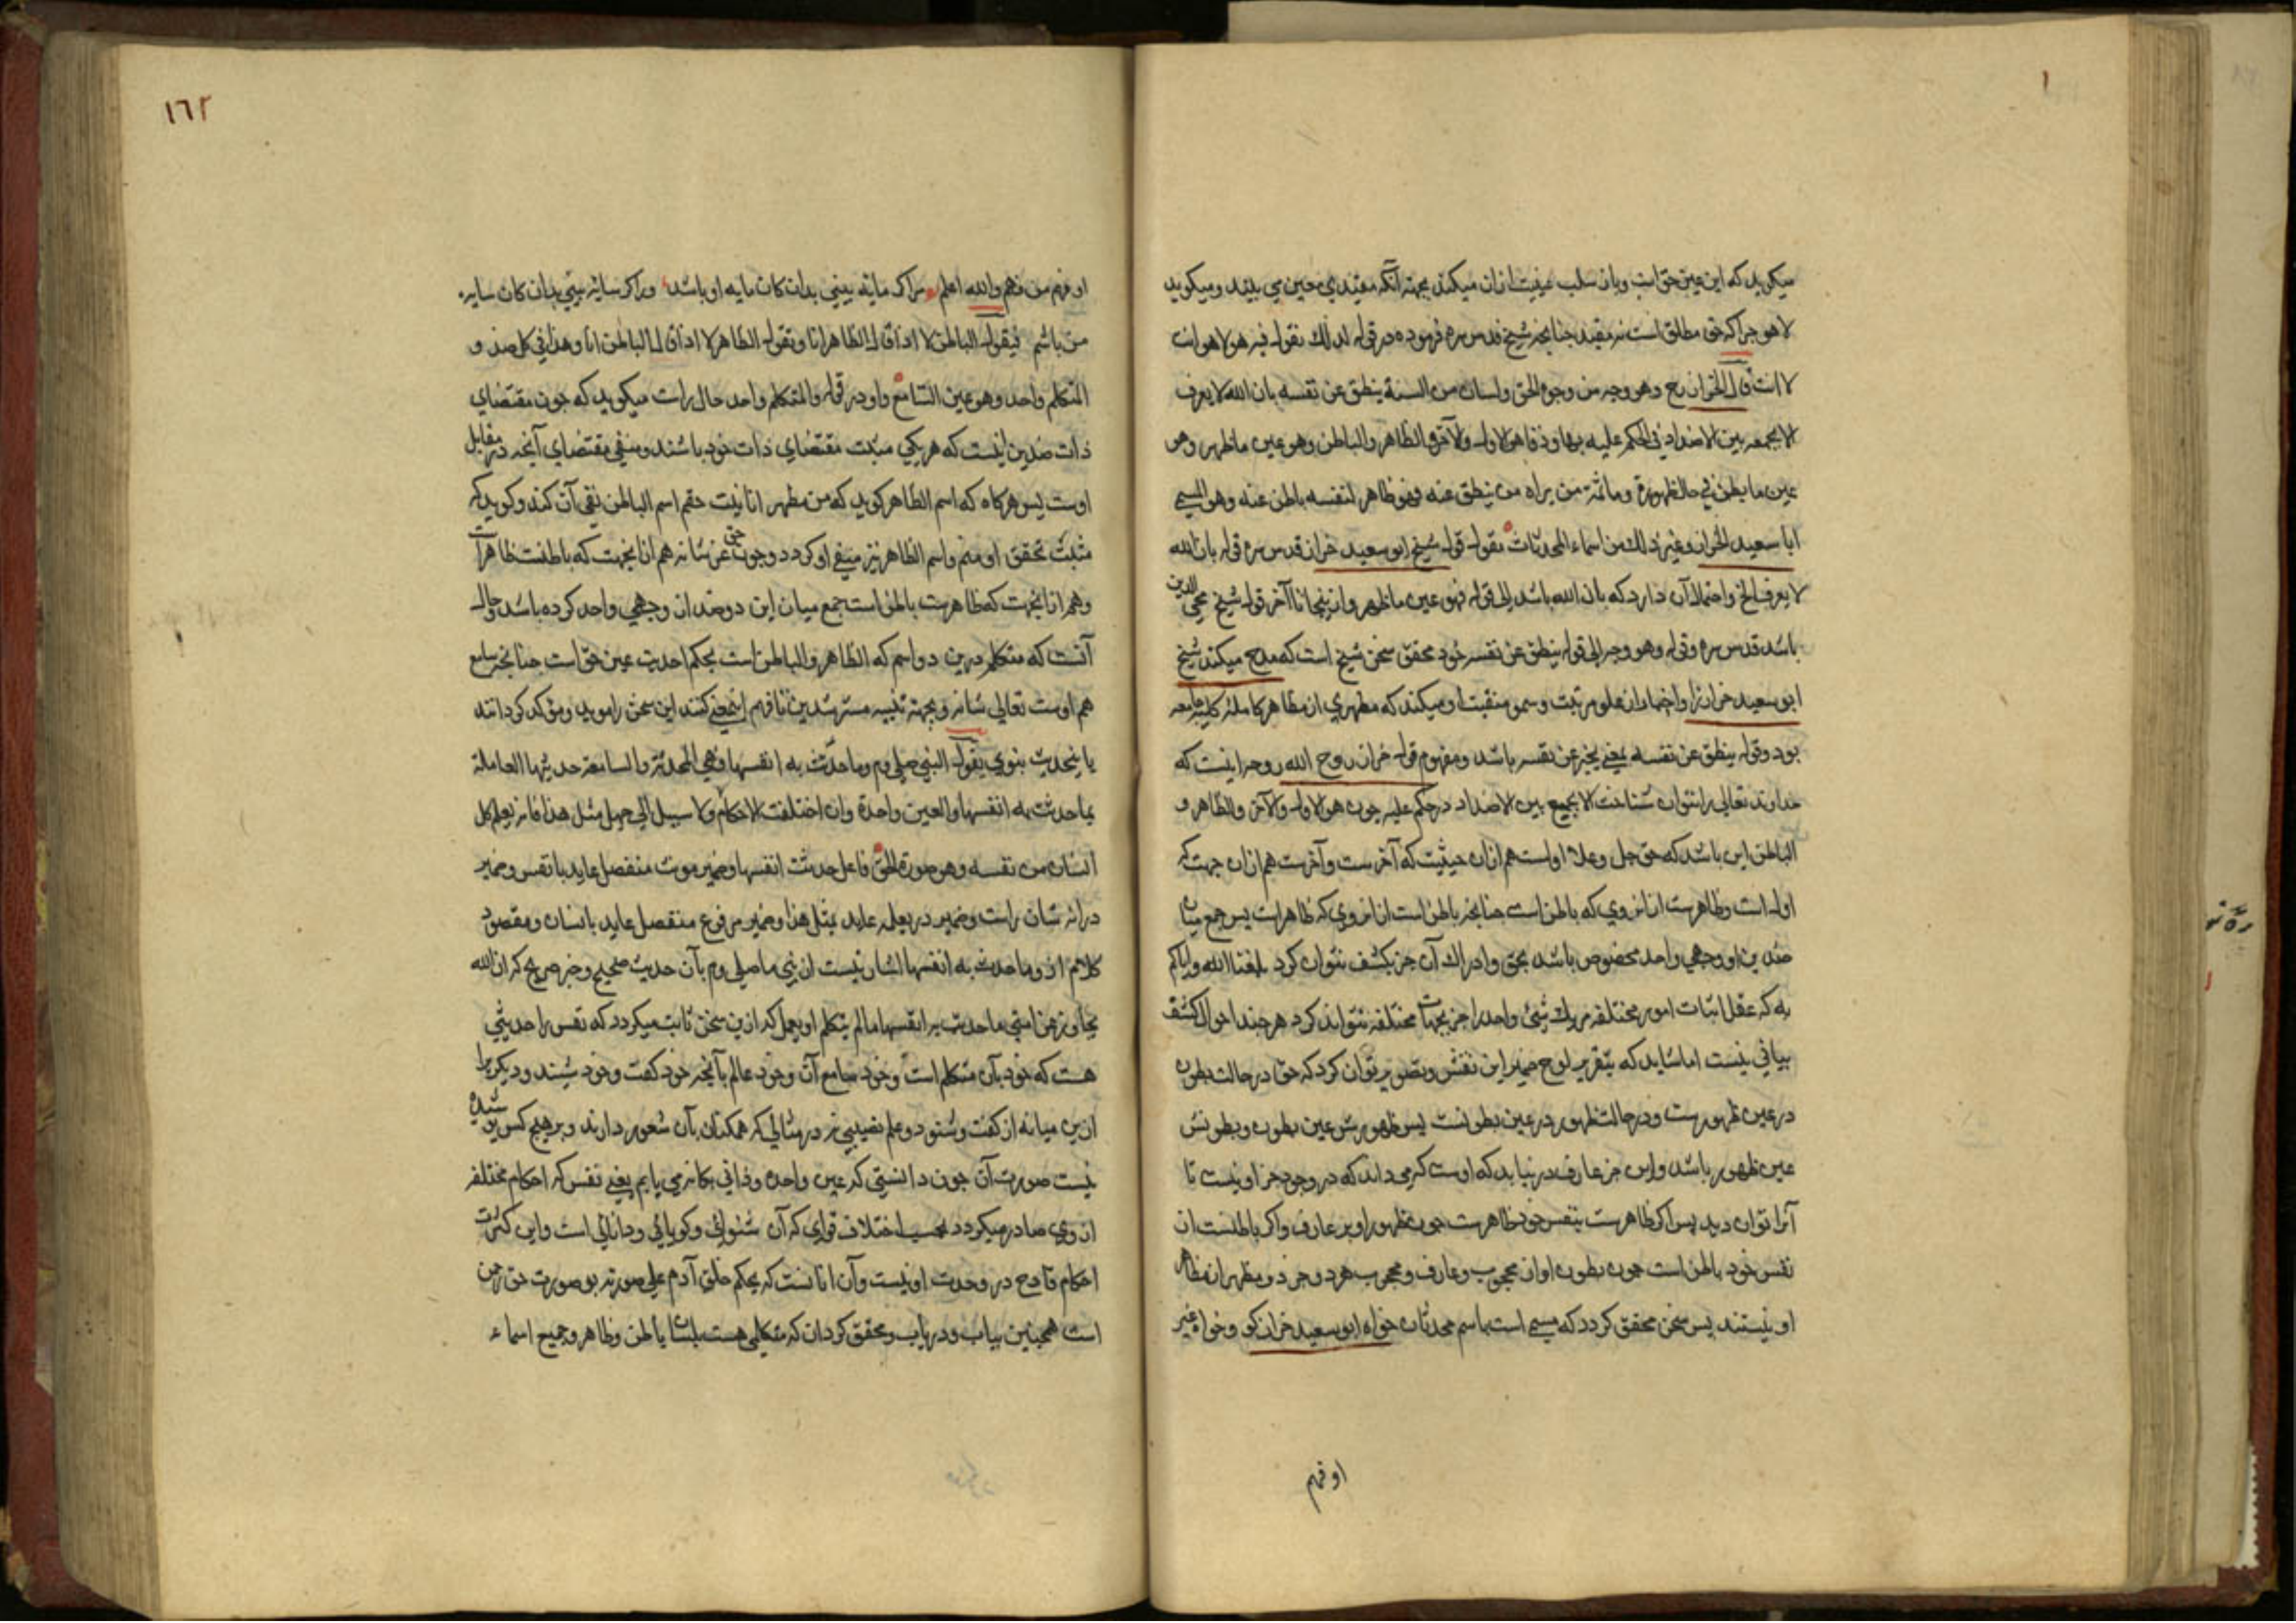 میکوید که این عین حق است وبان سلب عینیت ازان میکند بجهة آنکه مقیدی معین می بیند ومیکوید
لا هو جراکه حق مطلق است نه مقید جنانجه شیخ قدس سره فرموده در قوله لذلك نقول فیه هو لا هو انت
لا انت قال الخراز رح وهو وجه من وجوه الحق ولسان من السنة ینطق عن نفسه بان الله لا یعرف
الا بجمعه بین الاضداد فی الحکم علیه بها وذفا هو الاول والآخر والظاهر والباطن وهو عین ما ظهر وهو
عین ما بطن فی حال ظهوره وما ثمة من یراه من ینطق عنه فهو ظاهر لنفسه باطن عنه وهو المسمی
ابا سعید الخراز وغیر ذلك من اسماء المحدثات نقول قوله شیخ ابو سعید خراز قدس سره قوله بان الله
لا یعرف الخ واحتمال آن دارد که بان الله باشد الی قوله فهو عین ما ظهر وازینجا تا آخر قول شیخ محی الدین
باشد قدس سره وقوله وهو وجه الی قوله ینطق عن نفسه خود محقق سخن شیخ است که مدح میکند شیخ
ابو سعید خراز را واخبار از علو مرتبت وسمو منقبت او میکند که مظهری از مظاهر کامله کلیه جامعه
بود وقوله ینطق عن نفسه یعنی یخبر عن نفسه باشد ومفهوم قول خراز روح الله روحه اینست که
خداوند تعالی را نتوان شناخت الا بجمع بین الاضداد در حکم علیه جون هو الاول والآخر والظاهر و
الباطن این باشد که حق جل وعلا اولست هم ازان حیثیت که آخرست وآخرست هم ازان جهت که
اول است وظاهرست ازان روی که باطن است جنانجه باطن است ازان روی که ظاهرست پس جمع میان
ضدین از وجهی واحد مخصوص باشد بحق وادراك آن جز بکشف نتوان کرد بلغنا الله وایاکم
به که عقل اثبات امور مختلفه در یك شیئ واحد را جز بجهات مختلفه نتواند کرد هر جند احوال کشف
بیانی نیست اما شاید که بتقریر لوح ضمیر این نقش وتصویر توان کرد که حق در حالت بطون
در عین ظهورست ودر حالت ظهور در عین بطونست پس ظهورش عین بطون وبطونش
عین ظهور باشد واین جز عارف در نیابد که اوست که می داند که در وجود جز او نیست تا
آنرا توان دید پس اکر ظاهرست بنفس خود ظاهرست جون ظهور او بر عارف واکر باطنست از
نفس خود باطن است جون بطون او از محجوب وعارف ومحجوب هر دو جز دو مظهر از مظاهر
او نیستند پس سخن محقق کردد که مسمی است باسم محدثات خواه ابو سعید خراز کو وخواه غیر
او فهم
او فهم من فهم والله اعلم هر اکر مایهٔ بینی بدان کان مایه او باشد وراکر سایهٔ بینی بدان کان سایه
من باشم فیقول الباطن لا اذا قال الظاهر انا وتقول الظاهر لا اذا قال الباطن انا وهذا فی کل ضد و
المتکلم واحد وهو عین السامع واو در قوله والمتکلم واحد حال راست میکوید که جون مقتضای
ذات ضدین اینست که هر یکی مثبت مقتضای ذات خود باشند ومنفی مقتضای آنجه در مقابل
اوست پس هرکاه که اسم الظاهر کوید که من مظهر انانیت حقم اسم الباطن نفی آن کند وکوید که
مثبت تحقق او منم واسم الظاهر نیز منفی او کردد وجون حق عز شانه هم ازانجهت که باطنست ظاهرست
وهم ازانجهت که ظاهرست باطن است جمع میان این دو ضد از وجهی واحد کرده باشد وحال
آنست که متکلم درین دو اسم که الظاهر والباطن است بحکم احدیت عین حق است جنانجه سامع
هم اوست تعالی شانه وبجهة تنبیه مسترشدین تا فهم این معنی کنند این سخن را موید ومؤکد کردانند
یا بحدیث نبوی یقول النبی صلی وم وما حدثت به انفسها فهی المحدثة والسامعة حدیثها العاملة
بما حدثت به انفسها والعین واحدة وان اختلفت الاحکام ولا سبیل الی جهل مثل هذا فانه یعلم کل
انسان من نفسه وهو صورة الحق فاعل حدثت انفسها وضمیر مونث منفصل عاید با نفس وضمیر
در انه شان راست وضمیر در یعلم عاید بمثل هذا وضمیر مرفوع منفصل عاید بانسان ومقصود
کلام از وما حدثت به انفسها اشارتیست از نبی ما صلی وم بآن حدیث صحیح وخبر صریح که ان الله
تجاوز عن امتی ما حدثت به انفسها ما لم یتکلم او یعمل که ازین سخن ثابت میکردد که نفس را حدیثی
هست که خود بآن متکلم است وخود سامع آن وخود عالم بآنجه خود کفت وخود شنید ودیکریرا
ازین میانه از کفت وشنود وعلم نصیبی نه در مثالی که همکنان بآن شعور دارند وبر هیج کس پوشیده
نیست صورت آن جون دانستی که عین واحده وذاتی یکانه می یابم یعنی نفس که احکام مختلفه
از وی صادر میکردد بحسب اختلاف قوای که آن شنوائی وکویائی ودانائی است واین کثرت
احکام قادح در وحدت او نیست وآن انانست که بحکم خلق آدم علی صورته بر صورت حق
است همجنین بیاب ودریاب ومحقق کردان که متکلمی هست بلسان باطن وظاهر وجمیع اسماء
١٦٢